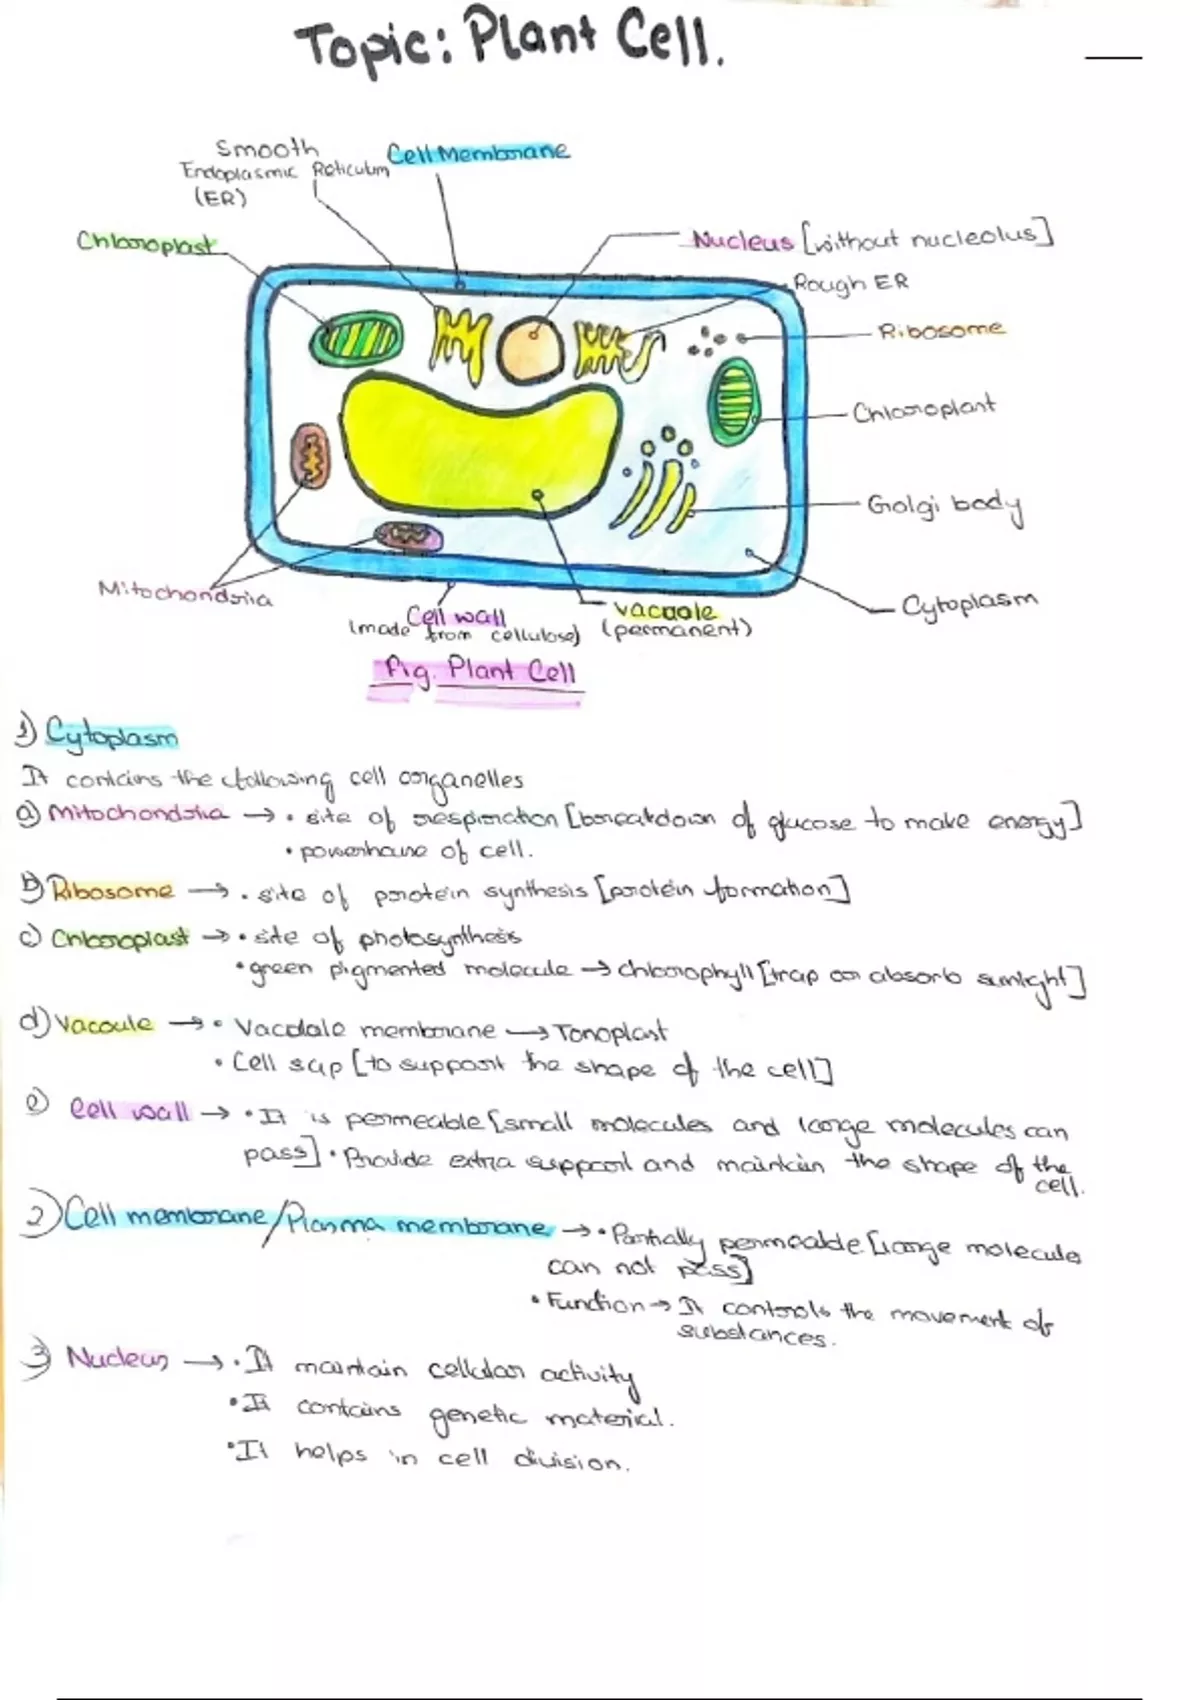 Topic: Plant Cell.
Smooth
Endoplasmic Reticulum
(ER)
Cell Membrane
Chloroplast
Nucleus [without nucleolus]
Rough ER
Ribosome
Chloroplant
Golgi body
Mitochondria
Cell wall
(made from cellulose)
vacuole
(permanent)
Cytoplasm
fig. Plant Cell
1) Cytoplasm
It contains the following cell organelles
a) Mitochondria → • site of respiration [breakdown of glucose to make energy]
• powerhouse of cell.
b) Ribosome → • site of protein synthesis [protein formation]
c) Chloroplast → • site of photosynthesis
• green pigmented molecule → chlorophyll [trap or absorb sunlight]
d) Vacoule → • Vacoule membrane → Tonoplast
• Cell sap [to support the shape of the cell]
e) Cell wall → • It is permeable [small molecules and large molecules can
pass] • Provide extra support and maintain the shape of the
cell.
2) Cell membrane/Plasma membrane → • Partially permeable [large molecule
can not pass]
• Function → It controls the movement of
substances.
3) Nucleus → • It maintain cellular activity
• It contains genetic material.
• It helps in cell division.